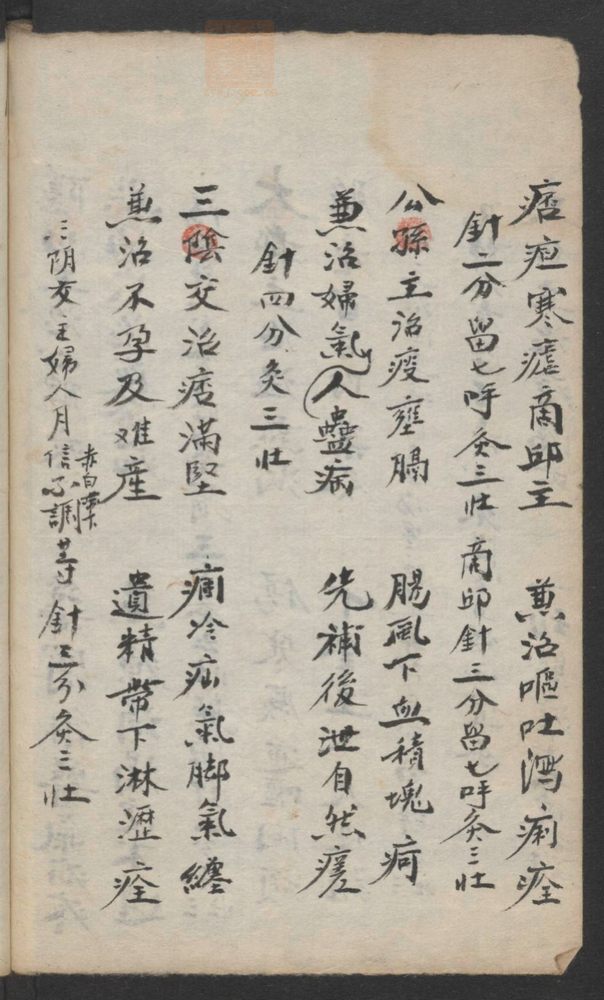 痞疸寒瘧商邱主　兼治嘔吐瀉痢痊
針二分留七呼灸三壯　商邱針三分留七呼灸三壯
公孫主治痰壅膈　腸風下血積塊疴
兼治婦氣人蠱病　先補後泄自然瘥
針四分灸三壯
三陰交治痞滿堅　痼冷疝氣腳氣纏
兼治不孕及难產　遺精帶下淋瀝痊
三阴交主婦人月信不調赤白帶下等針三分灸三壯